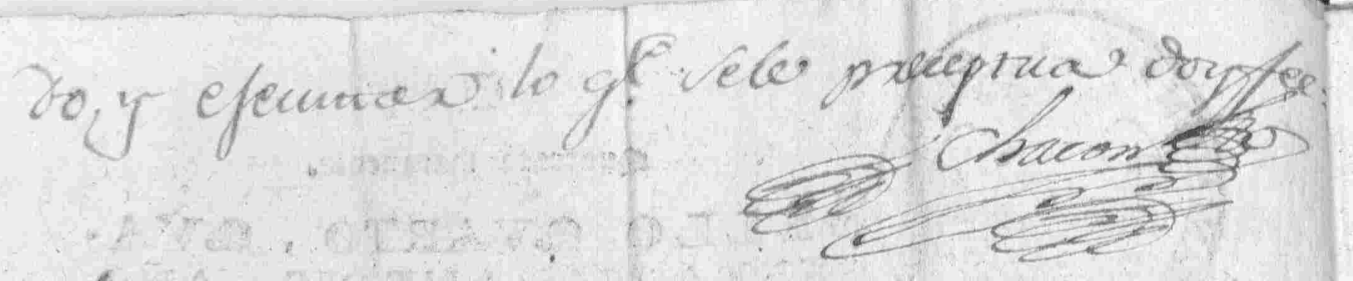 do, y efecutara lo q.e sele preceptua doy fee.
Chacon